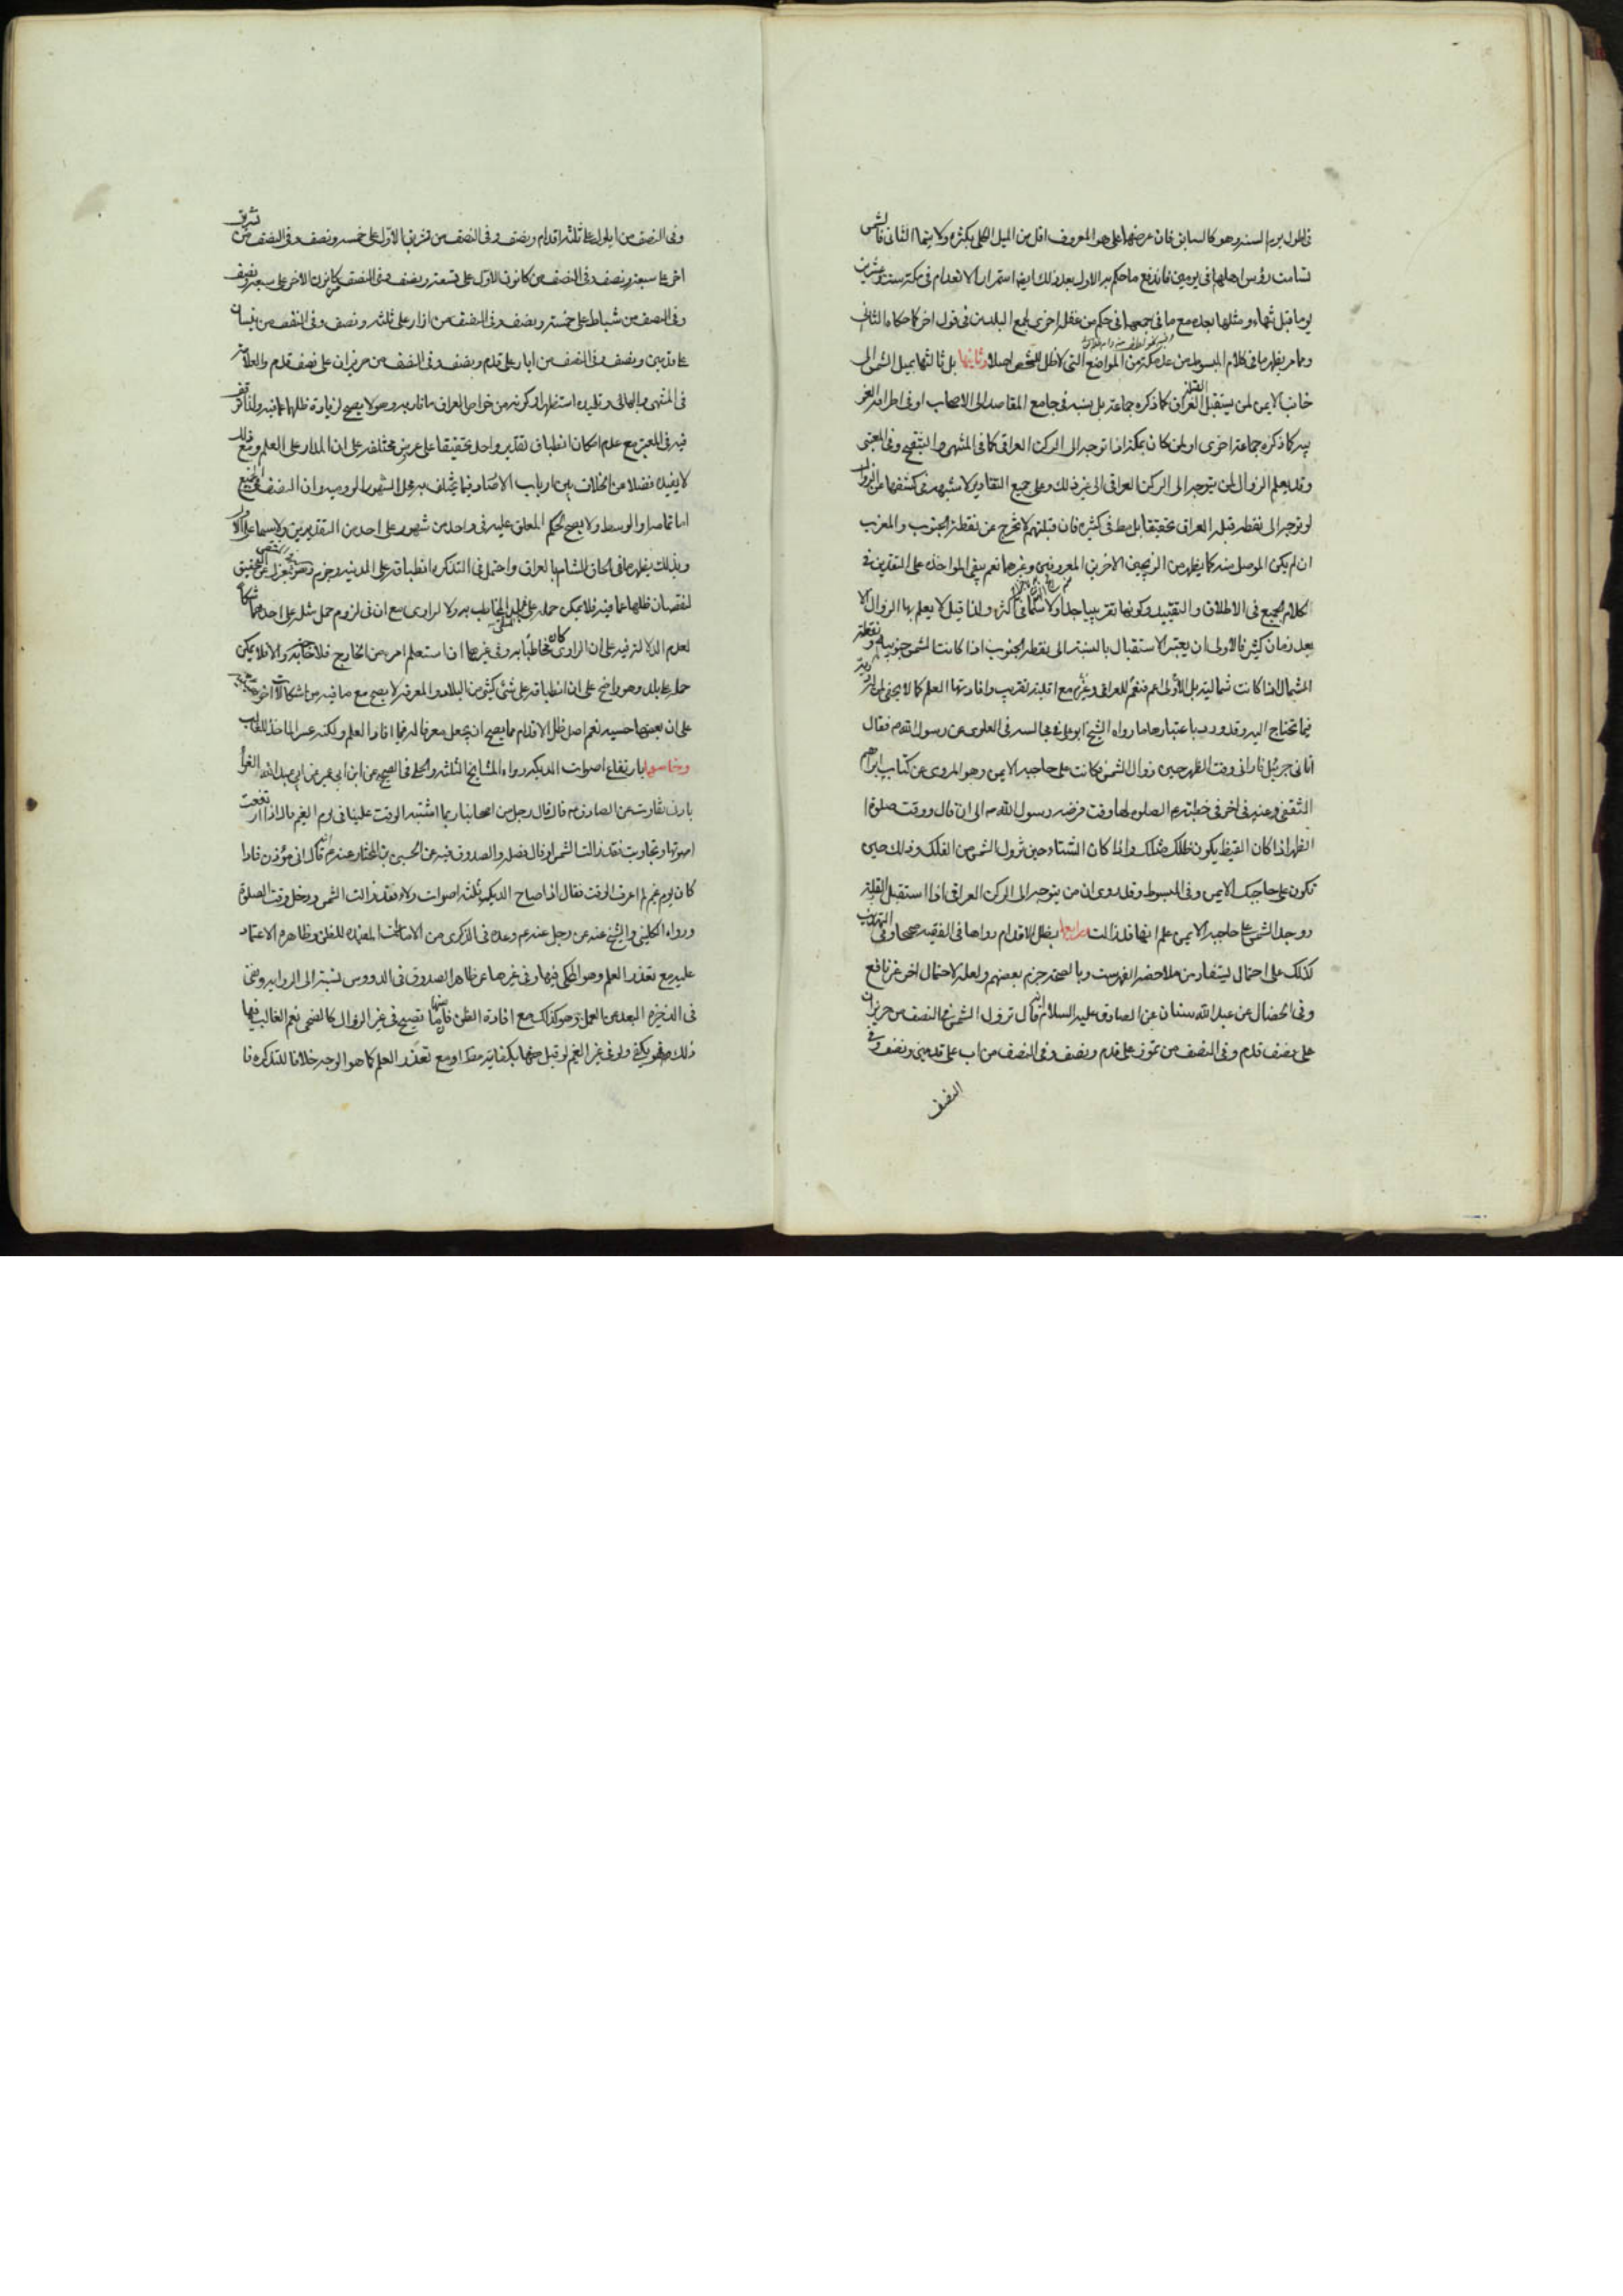 في اطول يوم السنة وهو كالسابق فان عرضها على هو المعروف اقل من الميل الكلي بكثير ولا يتما الثاني فالشمس
تسامت رؤس اهلها في يومين فاندفع ما حكم به الاول بعد ذلك ايضا استمرار الانعدام في مكة ستة وعشرين
يوما قبل انتهاء ومثلها بعده مع ما في جمعهما في حكم من غفل اخرى لجمع البلدين في قول اخر كما حكاه الثاني
ومما مر يظهر ما في كلام المبسوط من عد مكة من المواضع التي لا ظل للشخص اصلا وثانيها بل ثالثها بميل الشمس الى
جانب الايمن لمن يستقبل القبلة العراق كما ذكره جماعة بل ينسبه في جامع المقاصد الى الاصحاب او في اطراف الغر
بية كما ذكره جماعة اخرى او لمن كان بمكة اذا توجه الى الركن العراقي كما في المنتهى والتنقيح وفي المعتبر
وقد يعلم الزوال لمن يتوجه الى الركن العراقي الى غير ذلك وعلى جميع التقادير لا شبهة في كشفها من الزوال
لو توجه الى نقطة قبلة العراق تحقيقا بل مط في كثيره فان قبلتهم لا تخرج عن نقطة الجنوب والمغرب
ان لم يكن الموصل منه كما يظهر من الزيجين الاخرين المعروفين وغيرهما نعم يبقى المواخذة على التقديرين في
الكلام الجميع في الاطلاق والتقييد وكونها تقريبيا جدا ولا سيما في اكثره ولذا قيل لا يعلم بها الزوال الا
بعد زمان كثير فالاولى ان يعتبر الاستقبال بالنسبة الى نقطة الجنوب اذا كانت الشمس جنوبية ونقطة
الشمال اذا كانت شمالية بل الاولى اعم فنعم للعراقي وغيره مع اقلية تقريب وافادتها العلم كما لا يخفى
فيما تحتاج اليه وقد ورد باعتبارها ما رواه الشيخ ابو علي في مجالسه في العلوي عن رسول الله ص فقال
اتاني جبرئيل فاراني وقت الظهر حين زوال الشمس فكانت على حاجبه الايمن وهو المروي عن كتاب ابراهيم
الثقفي وعنه في اخر في خطبة ع الصلوة لها وقت فرضه رسول الله ص الى ان قال ووقت صلوة ا
الظهر اذا كان القيظ يكون ظلك مثلك واذا كان الشتاء حين تزول الشمس من الفلك وذلك حين
تكون على حاجبك الايمن وفي المبسوط وقد روى ان من يتوجه الى الركن العراقي اذا استقبل القبلة
ووجد الشمس على حاجبه الايمن علم انها قد زالت ورابعها بظل الاقدام رواها في الفقيه صحيحا وفي التهذيب
كذلك على احتمال يستفاد من ملاحظة الفهرست وبالصحة جزم بعضهم ولعله لاحتمال اخر غير نافع
وفي الخصال عن عبد الله سنان عن الصادق عليه السلام انه قال تزول الشمس في النصف من حزيران
على نصف قدم وفي النصف من تموز على قدم ونصف وفي النصف من اب على قدمين ونصف وفي
النصف
وفي النصف من ايلول على ثلثة اقدام ونصف وفي النصف من تشرين الاول على خمسة ونصف وفي النصف من تشرين
اخر على سبعة ونصف وفي النصف من كانون الاول على تسعة ونصف وفي النصف من كانون الاخر على سبعة ونصف
وفي النصف من شباط على خمسة ونصف وفي النصف من اذار على ثلثة ونصف وفي النصف من نيسان
على قدمين ونصف وفي النصف من ايار على قدم ونصف وفي النصف من حزيران على نصف قدم والعلامة
في المنتهى والبهائي وتلميذه استظهروا كونه من خواص العراق وما قاربه وهو لا يصح لزيادة ظلها عما فيه ولذا توقف
فيه في المعتبر مع عدم امكان انطباق تقدير واحد تحقيقا على عرض مختلفة على ان المدار على العلم ومع ذلك
لا يفيده فضلا من الخلاف بين ارباب الارصاد فيما يختلف به محل الشهور الرومية وان النصف في الجميع
اما تماما او الوسط ولا يصح الحكم المعلق عليه في واحد من شهوره على احد من التقديرين ولا سيما على الاول
وبذلك يظهر ما في الحاق الشام بالعراق واحتمل في التذكرة انطباقه على المدينة وجزم بعض بمعزل عن التحقيق
لنقصان ظلها عما فيه فلا يمكن حمله على بلد المخاطب به ولا لراوي مع ان في لزوم حمل مثله على احدهما شكا
لعدم الدلالة فيه على ان الراوي كان مخاطبا به وفي غيرها اذا استعلم امر من الخارج فلا حاجة والا فلا يمكن
حمله على بلده وهو واضح على ان انطباقه على شئ كثير من البلاد والمعرفة لا يصح مع ما فيه من اشكالات اخر
على ان بعضها حسيه نعم اصل ظل الاقدام مما يصح ان يجعل معرفا له فيما افاد العلم ولكنه عسر الماخذ للغالب
وخامسها بارتفاع اصوات الديكة رواه المشايخ الثلثة والحلي في الصحيح عن ابن ابي عمير عن ابي عبد الله الفراء
بادنى تفاوت عن الصادق ع قال قال رجل من اصحابنا ربما اشتبه الوقت علينا في يوم الغيم قال اذا ارتفعت
اصواتها وتجاوبت فقد زالت الشمس او قال فصله والصدوق فيه عن الحسين بن المختار عنه ع قال اني مؤذن فاذا
كان يوم غيم لم اعرف الوقت فقال اذا صاح الديك ثلثة اصوات ولاء فقد زالت الشمس ودخل وقت الصلوة
ورواه الكليني والشيخ عنه عن رجل عنه ع وعده في الذكرى من الامارات المفيدة للظن وظاهره الاعتماد
عليه مع تعذر العلم وهو المحكي فيها وفي غيرها عن ظاهر الصدوق وفي الدروس نسبه الى الرواية ونفى
في الذخيرة البعد عن العمل وهو كذلك مع افادة الظن فانها تصيح في غير الزوال كالضحى نعم الغالب فيها
ذلك فهو يكفي ولو في غير الغيم لو قيل فيها بكفايته مطلقا او مع تعذر العلم كما هو الوجه خلافا للتذكرة فا